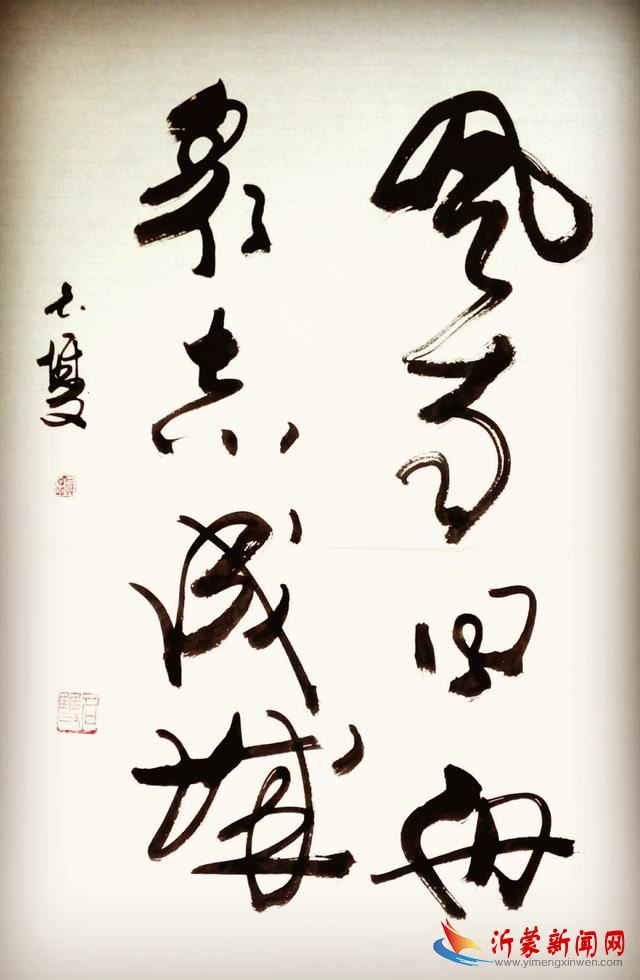 風雨同舟
眾志成城
沂蒙新闻网
www.yimengxinwen.com